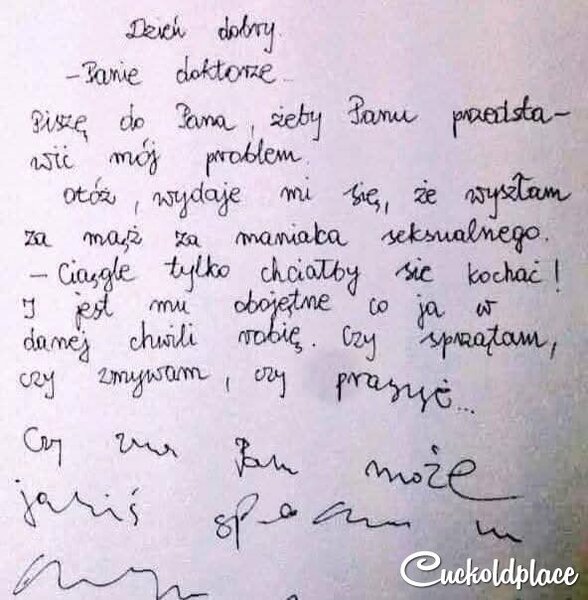 Dzień dobry.
- Panie doktorze
Piszę do Pana, żeby Panu przedsta-
wić mój problem.
otóż, wydaje mi się, że wyszłam
za mąż za maniaka seksualnego.
- Ciągle tylko chciałby się kochać!
I jest mu obojętne co ja w
danej chwili robię. Czy sprzątam,
czy zmywam, czy
Czy zna Pan może
jakiś
Cuckoldplace